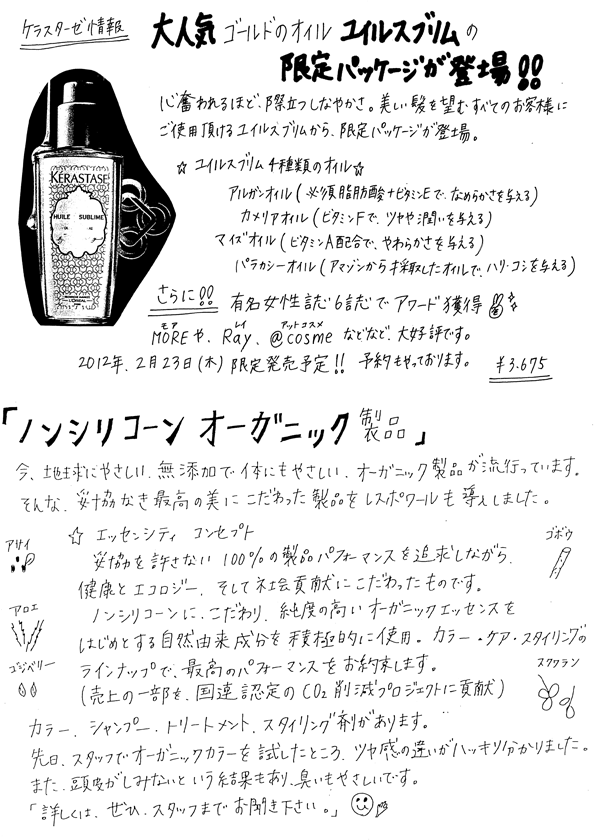 ケラスターゼ情報
大人気 ゴールドのオイル ユイルスブリムの
限定パッケージが登場!!
心奮われるほど、際立つしなやかさ。美しい髪を望むすべてのお客様に
ご使用頂けるユイルスブリムから、限定パッケージが登場。
☆ ユイルスブリム 4種類のオイル☆
アルガンオイル (必須脂肪酸+ビタミンEで、なめらかさを与える)
カメリアオイル (ビタミンFで、ツヤや潤いを与える)
マイズオイル (ビタミンA配合で、やわらかさを与える)
パラカシーオイル (アマゾンから採取したオイルで、ハリ・コシを与える)
KÉRASTASE
HUILE SUBLIME
さらに!! 有名女性誌6誌でアワード獲得
モア レイ アットコスメ
MOREや、Ray、@cosmeなどなど、大好評です。
2012年、2月23日(木)限定発売予定!! 予約もやっております。 ¥3.675
「ノンシリコーン オーガニック製品」
今、地球にやさしい、無添加で体にもやさしい、オーガニック製品が流行っています。
そんな、妥協なき最高の美にこだわった製品をレスポワールも導入しました。
アサイ
☆ エッセンシティ コンセプト
ゴボウ
妥協を許さない100%の製品パフォーマンスを追求しながら、
健康とエコロジー、そして社会貢献にこだわったものです。
アロエ
ノンシリコーンに、こだわり、純度の高いオーガニックエッセンスを
はじめとする自然由来成分を積極的に使用。カラー・ケア・スタイリングの
ゴジベリー
ラインナップで、最高のパフォーマンスをお約束します。
スクワラン
(売上の一部を、国連認定のCO2削減プロジェクトに貢献)
カラー、シャンプー、トリートメント、スタイリング剤があります。
先日、スタッフでオーガニックカラーを試したところ、ツヤ感の違いがハッキリ分かりました。
また、頭皮がしみないという結果もあり、臭いもやさしいです。
「詳しくは、ぜひ、スタッフまでお聞き下さい。」